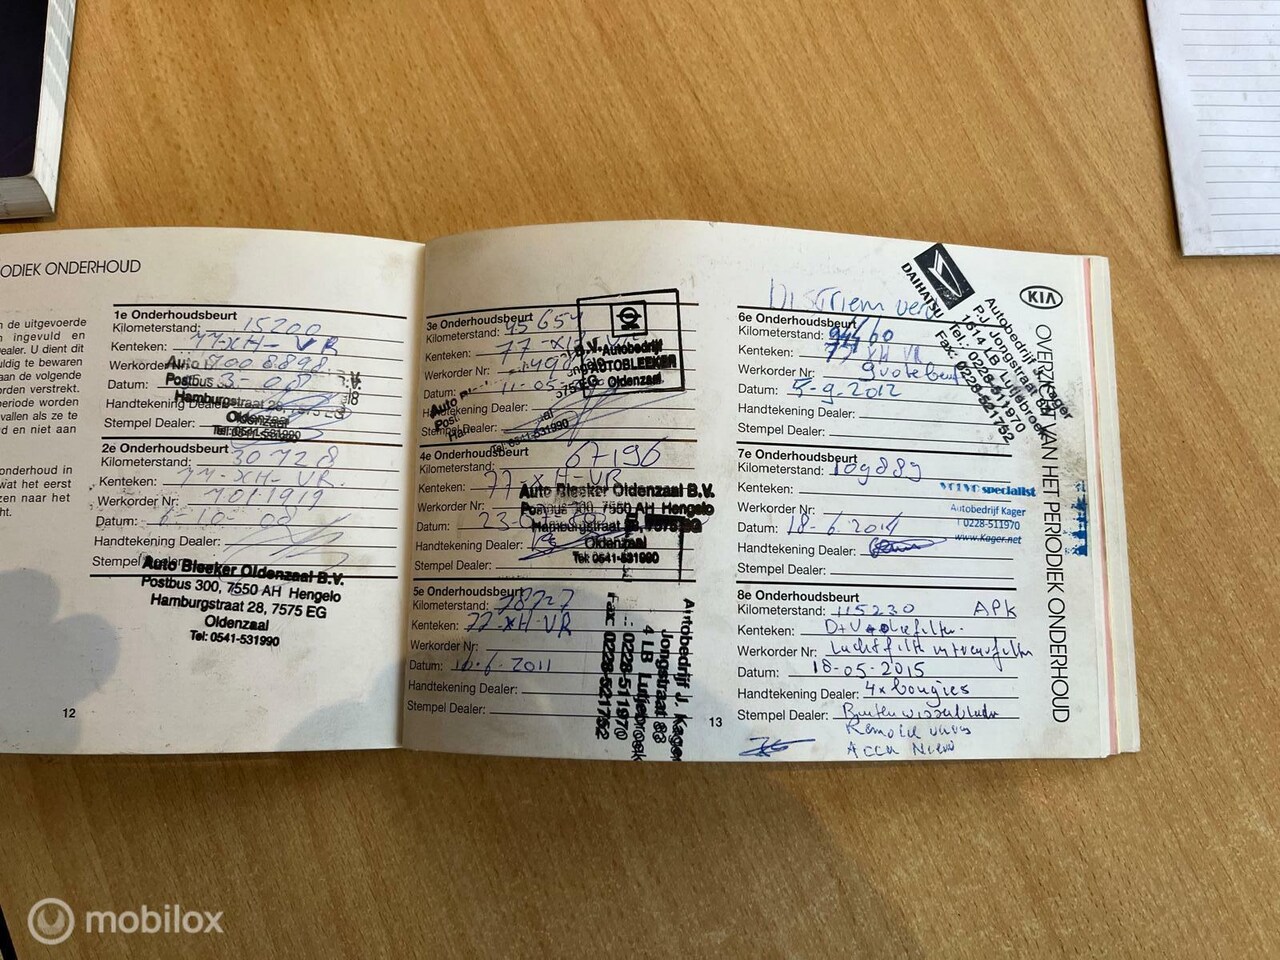 ODIEK ONDERHOUD
n de uitgevoerde
n ingevuld en
ealer. U dient dit
uldig te bewaren
aan de volgende
orden verstrekt.
periode worden
vallen als ze te
d en niet aan
onderhoud in
wat het eerst
zen naar het
cht.
12
1e Onderhoudsbeurt
Kilometerstand: 15200
Kenteken: 77-XH-VR
Werkorder Nr: 7008898
Datum:
Handtekening Dealer:
Stempel Dealer:
Auto
Postbus
Hamburgstraat 28, 7575 EG
Oldenzaal
Tel: 0541-531990
2e Onderhoudsbeurt
Kilometerstand: 30728
Kenteken: 77-XH-VR.
Werkorder Nr: 7011919
Datum:
Handtekening Dealer:
Stempel Dealer:
Auto Bleeker Oldenzaal B.V.
Postbus 300, 7550 AH Hengelo
Hamburgstraat 28, 7575 EG
Oldenzaal
Tel: 0541-531990
3e Onderhoudsbeurt
Kilometerstand: 45654
Kenteken: 77-XH-VR
Werkorder Nr:
Datum: 11-05-
Handtekening Dealer:
Stempel Dealer:
B.V. Autobedrijf
AUTOBLEEKER
Oldenzaal
Tel: 0541-531990
4e Onderhoudsbeurt
Kilometerstand: 67196
Kenteken: 77-XH-VR
Werkorder Nr:
Datum: 23-0
Handtekening Dealer:
Stempel Dealer:
Auto Bleeker Oldenzaal B.V.
Postbus 300, 7550 AH Hengelo
Hamburgstraat 28, 7575 EG
Oldenzaal
Tel: 0541-531990
5e Onderhoudsbeurt
Kilometerstand: 78727
Kenteken: 77-XH-VR
Werkorder Nr:
Datum: 16-6-2011
Handtekening Dealer:
Stempel Dealer:
Autobedrijf J. Kager
Jongstraat 83
4 LB Lutjebroek
.: 0228-511970
Fax: 0228-521752
13
KIA
OVERZICHT VAN HET PERIODIEK ONDERHOUD
Distriem
6e Onderhoudsbeurt
Kilometerstand:
Kenteken: XH VR
Werkorder Nr: grote beurt
Datum: 5-9-2012
Handtekening Dealer:
Stempel Dealer:
DAIHATSU
Autobedrijf J. Kager
P.J. Jongstraat 83
1614 LB Lutjebroek
Tel. 0228-511970
Fax: 0228-521752
7e Onderhoudsbeurt
Kilometerstand: 109889
Kenteken:
Werkorder Nr:
Datum: 18-6-2014
Handtekening Dealer:
Stempel Dealer:
VOLVO specialist
Autobedrijf Kager
0228-511970
www.Kager.net
8e Onderhoudsbeurt
Kilometerstand: 115230 APK
Kenteken: D+V+oliefilter
Werkorder Nr: Luchtfilter interieurfilter
Datum: 18-05-2015
Handtekening Dealer: 4x bougies
Stempel Dealer: Ruitenwisserbladen
Accu Nieuw
mobilox